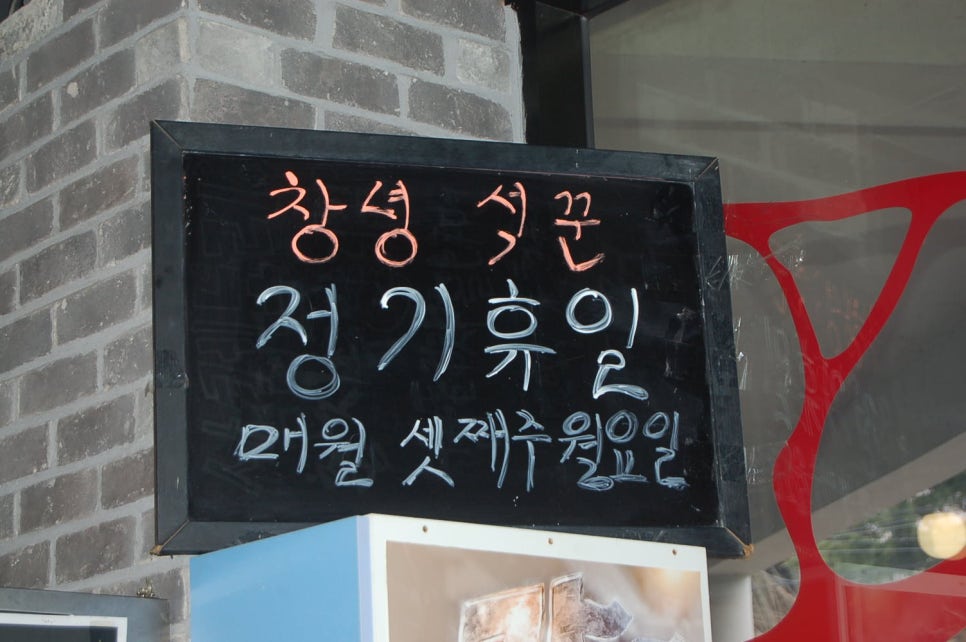 창녕 석꾼
정기휴일
매월 셋째주 월요일